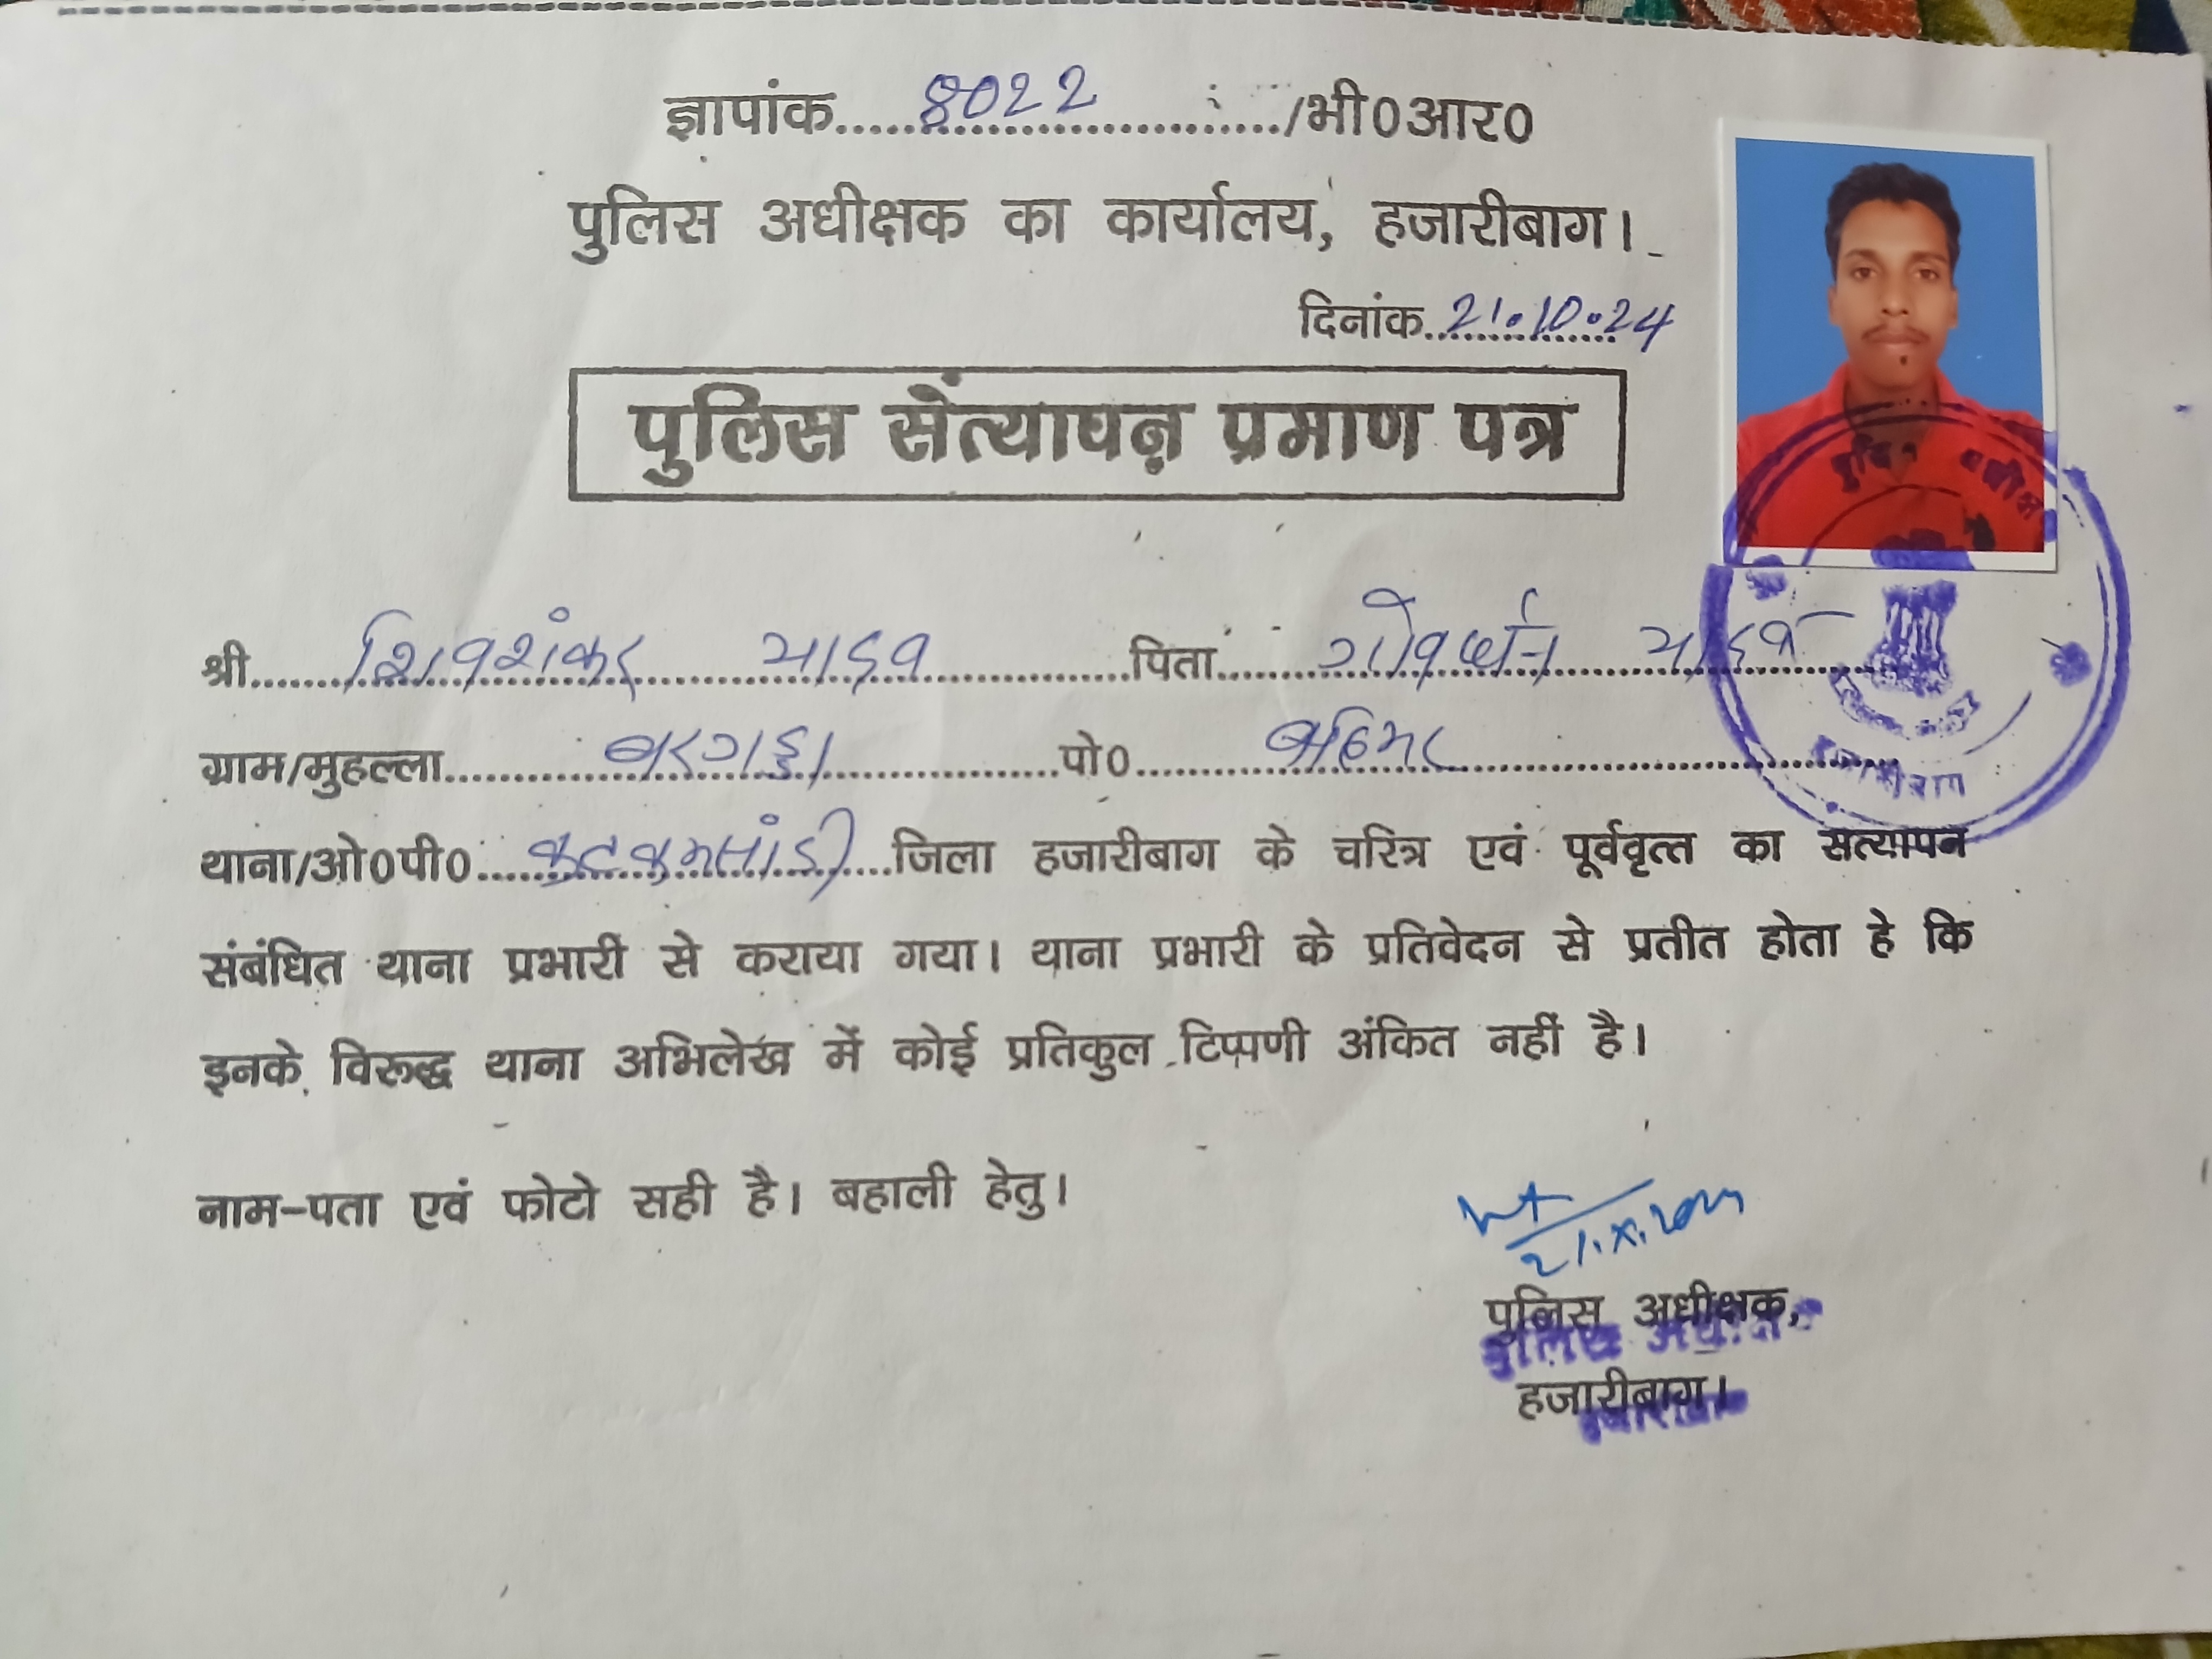 ज्ञापांक.....8022............/भी0आर0
पुलिस अधीक्षक का कार्यालय, हजारीबाग।
दिनांक..21.10.24
पुलिस सत्यापन प्रमाण पत्र
श्री......शिवशंकर यादव............पिता......गोवर्धन यादव......
ग्राम/मुहल्ला..........बरगड्डा..........पो0..........
थाना/ओ0पी0.....कटकमसांडी....जिला हजारीबाग के चरित्र एवं पूर्ववृत्त का सत्यापन
संबंधित थाना प्रभारी से कराया गया। थाना प्रभारी के प्रतिवेदन से प्रतीत होता हे कि
इनके विरूद्ध थाना अभिलेख में कोई प्रतिकुल टिप्पणी अंकित नहीं है।
नाम-पता एवं फोटो सही है। बहाली हेतु।
पुलिस अधीक्षक,
हजारीबाग।